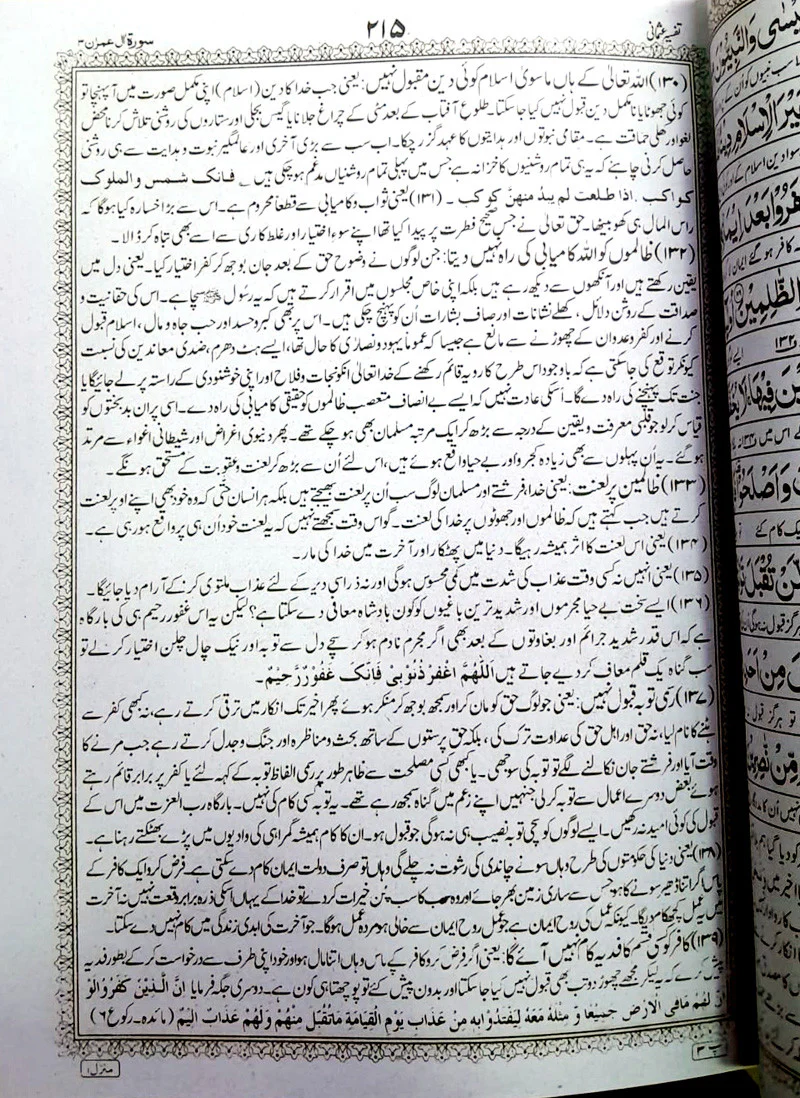 تفسیر عثمانی
۲۱۵
سورۃ آل عمرٰن ۳
(۱۳۰) اللہ تعالیٰ کے ہاں ماسویٰ اسلام کوئی دین مقبول نہیں: یعنی جب خدا کا دین (اسلام) اپنی مکمل صورت میں آپہنچا تو
کوئی جھوٹا یا نامکمل دین قبول نہیں کیا جاسکتا۔ طلوع آفتاب کے بعد مٹی کے چراغ جلانا یا گیس بجلی اور ستاروں کی روشنی تلاش کرنا محض
لغو اور کھلی حماقت ہے۔ مقامی نبوتوں اور ہدایتوں کا عہد گزر چکا۔ اب سب سے بڑی آخری اور عالمگیر نبوت و ہدایت سے ہی روشنی
حاصل کرنی چاہئے کہ یہ ہی تمام روشنیوں کا خزانہ ہے جس میں پہلی تمام روشنیاں مدغم ہوچکی ہیں ؎ فانک شمس والملوک
کواکب ۔ اذا طلعت لم یبد منھنّ کوکب ۔ (۱۳۱) یعنی ثواب و کامیابی سے قطعاً محروم ہے۔ اس سے بڑا خسارہ کیا ہوگا کہ
راس المال ہی کھو بیٹھا۔ حق تعالیٰ نے جس صحیح فطرت پر پیدا کیا تھا اپنے سوءِ اختیار اور غلط کاری سے اسے بھی تباہ کر ڈالا۔
(۱۳۲) ظالموں کو اللہ کامیابی کی راہ نہیں دیتا: جن لوگوں نے وضوح حق کے بعد جان بوجھ کر کفر اختیار کیا۔ یعنی دل میں
یقین رکھتے ہیں اور آنکھوں سے دیکھ رہے ہیں بلکہ اپنی خاص مجلسوں میں اقرار کرتے ہیں کہ یہ رسول ﷺ سچا ہے۔ اس کی حقانیت و
صداقت کے روشن دلائل، کھلے نشانات اور صاف بشارات اُن کو پہنچ چکی ہیں۔ اس پر بھی کبر و حسد اور حب جاہ و مال، اسلام قبول
کرنے اور کفر و عدوان کے چھوڑنے سے مانع ہے جیسا کہ عموماً یہود و نصاریٰ کا حال تھا، ایسے ہٹ دھرم، ضدی معاندین کی نسبت
کیونکر توقع کی جاسکتی ہے کہ باوجود اس طرح کا رویہ قائم رکھنے کے خدا تعالیٰ انکو نجات و فلاح اور اپنی خوشنودی کے راستہ پر لے جائیگا یا
جنت تک پہنچنے کی راہ دے گا۔ اُسکی عادت نہیں کہ ایسے بے انصاف متعصب ظالموں کو حقیقی کامیابی کی راہ دے۔ اسی پر ان بدبختوں کو
قیاس کرلو جو قلبی معرفت و یقین کے درجہ سے بڑھ کر ایک مرتبہ مسلمان بھی ہوچکے تھے۔ پھر دنیوی اغراض اور شیطانی اغواء سے مرتد
ہوگئے۔ یہ اُن پہلوں سے بھی زیادہ کجرو اور بے حیا واقع ہوئے ہیں، اس لئے اُن سے بڑھ کر لعنت و عقوبت کے مستحق ہونگے۔
(۱۳۳) ظالمین پر لعنت: یعنی خدا، فرشتے اور مسلمان لوگ سب اُن پر لعنت بھیجتے ہیں بلکہ ہر انسان حتّٰی کہ وہ خود بھی اپنے اوپر لعنت
کرتے ہیں جب کہتے ہیں کہ ظالموں اور جھوٹوں پر خدا کی لعنت۔ گو اس وقت سمجھتے نہیں کہ یہ لعنت خود اُن ہی پر واقع ہو رہی ہے۔
(۱۳۴) یعنی اس لعنت کا اثر ہمیشہ رہیگا۔ دنیا میں پھٹکار اور آخرت میں خدا کی مار۔
(۱۳۵) یعنی انہیں نہ کسی وقت عذاب کی شدت میں کمی محسوس ہوگی اور نہ ذرا سی دیر کے لئے عذاب ملتوی کرکے آرام دیا جائیگا۔
(۱۳۶) ایسے سخت بے حیا مجرموں اور شدید ترین باغیوں کو کون بادشاہ معافی دے سکتا ہے؟ لیکن یہ اس غفور رحیم ہی کی بارگاہ
ہے کہ اس قدر شدید جرائم اور بغاوتوں کے بعد بھی اگر مجرم نادم ہو کر سچے دل سے توبہ اور نیک چال چلن اختیار کرلے تو
سب گناہ یک قلم معاف کر دیے جاتے ہیں اَللّٰھُمَّ اغْفِرْ ذُنُوْبِیْ فَاِنَّکَ غَفُوْرٌ رَّحِیْمٌ۔
(۱۳۷) رسمی توبہ قبول نہیں: یعنی جو لوگ حق کو مان کر اور سمجھ بوجھ کر منکر ہوئے پھر اخیر تک انکار میں ترقی کرتے رہے، نہ کبھی کفر سے
ہٹنے کا نام لیا، نہ حق اور اہل حق کی عداوت ترک کی، بلکہ حق پرستوں کے ساتھ بحث و مناظرہ اور جنگ و جدل کرتے رہے جب مرنے کا
وقت آیا اور فرشتے جان نکالنے لگے تو توبہ کی سوجھی۔ یا کبھی کسی مصلحت سے ظاہر طور پر رسمی الفاظ توبہ کے کہہ لئے یا کفر پر برابر قائم رہتے
ہوئے بعض دوسرے اعمال سے توبہ کرلی جنہیں اپنے زعم میں گناہ سمجھ رہے تھے۔ یہ توبہ کسی کام کی نہیں۔ بارگاہ رب العزت میں اس کے
قبول کی کوئی امید نہ رکھیں۔ ایسے لوگوں کو سچی توبہ نصیب ہی نہ ہوگی جو قبول ہو۔ ان کا کام ہمیشہ گمراہی کی وادیوں میں پڑے بھٹکتے رہنا ہے۔
(۱۳۸) یعنی دنیا کی حکومتوں کی طرح وہاں سونے چاندی کی رشوت نہ چلے گی وہاں تو صرف دولت ایمان کام دے سکتی ہے۔ فرض کرو ایک کافر کے
پاس اگر اتنا ڈھیر سونے کا ہو جس سے ساری زمین بھر جائے اور وہ سب کا سب پُن خیرات کردے تو خدا کے یہاں اسکی ذرہ برابر وقعت نہیں نہ آخرت
میں یہ عمل کچھ کام دیگا۔ کیونکہ عمل کی روح ایمان ہے جو عمل روح ایمان سے خالی ہو مردہ عمل ہوگا۔ جو آخرت کی ابدی زندگی میں کام نہیں دے سکتا۔
(۱۳۹) کافر کو کسی قسم کا فدیہ کام نہیں آئے گا: یعنی اگر فرض کرو کافر کے پاس وہاں اتنا مال ہو اور خود اپنی طرف سے درخواست کرکے بطور فدیہ
پیش کرے کہ یہ لیکر مجھے چھوڑ دو تب بھی قبول نہیں کیا جاسکتا اور بدون پیش کئے تو پوچھتا ہی کون ہے۔ دوسری جگہ فرمایا اِنَّ الَّذِیْنَ کَفَرُوْا لَوْ
اَنَّ لَھُمْ مَّافِی الْاَرْضِ جَمِیْعًا وَّ مِثْلَہٗ مَعَہٗ لِیَفْتَدُوْا بِہٖ مِنْ عَذَابِ یَوْمِ الْقِیَامَۃِ مَاتُقُبِّلَ مِنْھُمْ وَلَھُمْ عَذَابٌ اَلِیْمٌ (مائدہ۔ رکوع ۶)
پ ۳
منزل ۱